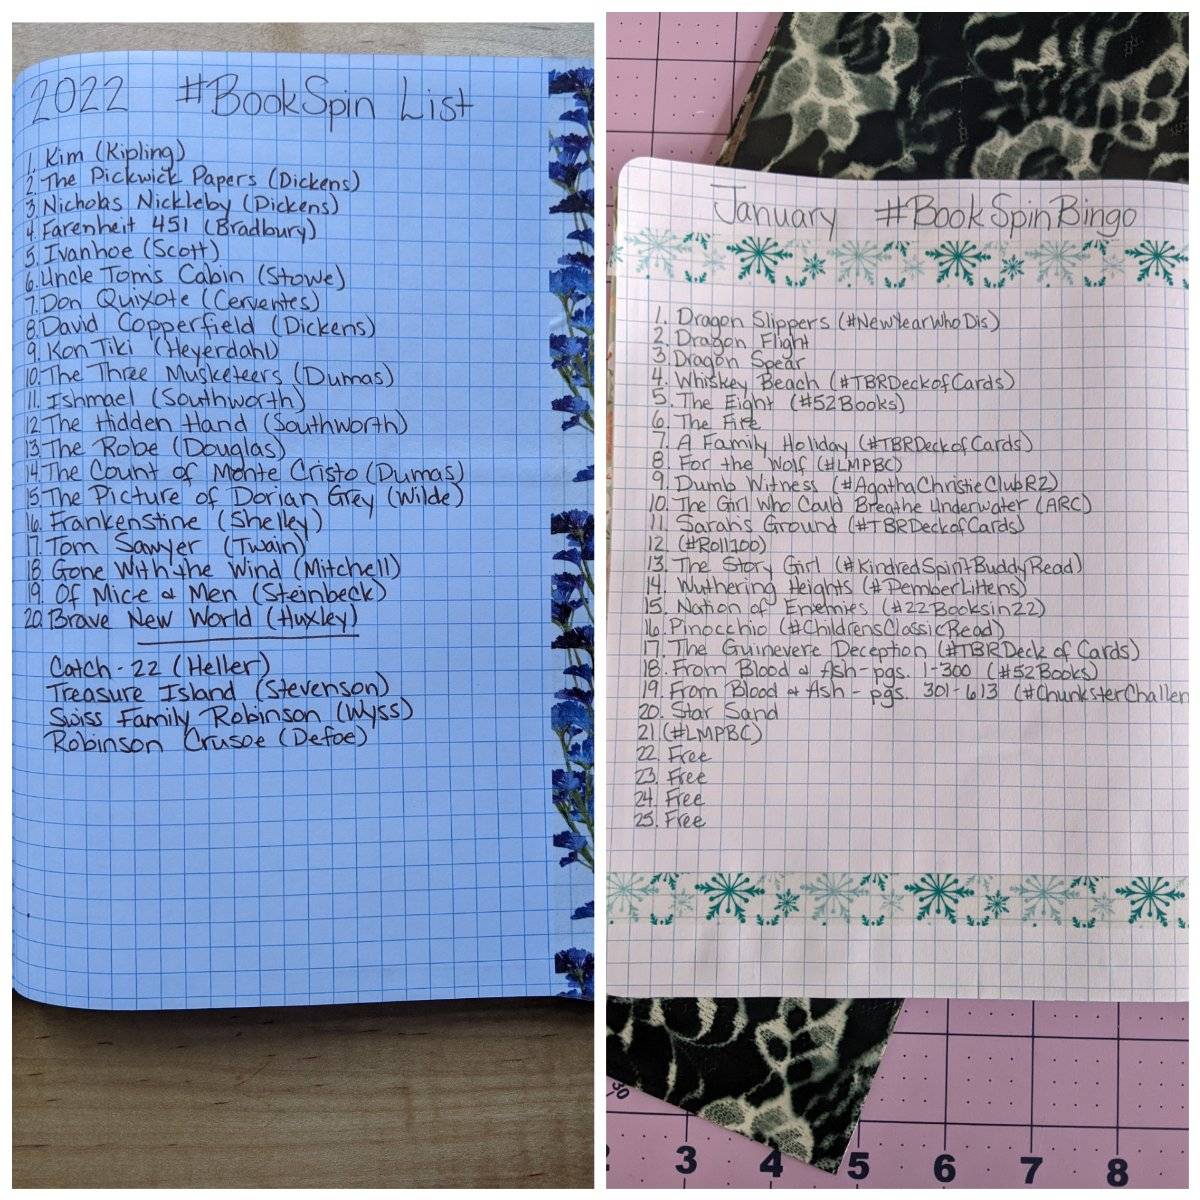 2022 #BookSpin List
1. Kim (Kipling)
2. The Pickwick Papers (Dickens)
3. Nicholas Nickleby (Dickens)
4. Farenheit 451 (Bradbury)
5. Ivanhoe (Scott)
6. Uncle Tom's Cabin (Stowe)
7. Don Quixote (Cerventes)
8. David Copperfield (Dickens)
9. Kon Tiki (Heyerdahl)
10. The Three Musketeers (Dumas)
11. Ishmael (Southworth)
12. The Hidden Hand (Southworth)
13. The Robe (Douglas)
14. The Count of Monte Cristo (Dumas)
15. The Picture of Dorian Grey (Wilde)
16. Frankenstine (Shelley)
17. Tom Sawyer (Twain)
18. Gone With the Wind (Mitchell)
19. Of Mice & Men (Steinbeck)
20. Brave New World (Huxley)
Catch-22 (Heller)
Treasure Island (Stevenson)
Swiss Family Robinson (Wyss)
Robinson Crusoe (Defoe)
January #BookSpinBingo
1. Dragon Slippers (#NewYearWhoDis)
2. Dragon Flight
3. Dragon Spear
4. Whiskey Beach (#TBRDeckofCards)
5. The Eight (#52Books)
6. The Fire
7. A Family Holiday (#TBRDeckofCards)
8. For the Wolf (#LMPBC)
9. Dumb Witness (#AgathaChristieClubR2)
10. The Girl Who Could Breathe Underwater (ARC)
11. Sarah's Ground (#TBRDeckofCards)
12. (#Roll100)
13. The Story Girl (#KindredSpiritBuddyRead)
14. Wuthering Heights (#PemberLittens)
15. Nation of Enemies (#22Booksin22)
16. Pinocchio (#ChildrensClassicRead)
17. The Guinevere Deception (#TBRDeck of Cards)
18. From Blood & Ash - pgs. 1-300 (#52Books)
19. From Blood & Ash - pgs. 301-613 (#ChunksterChallen
20. Star Sand
21. (#LMPBC)
22. Free
23. Free
24. Free
25. Free
30
2 3 4 5 6 7 8